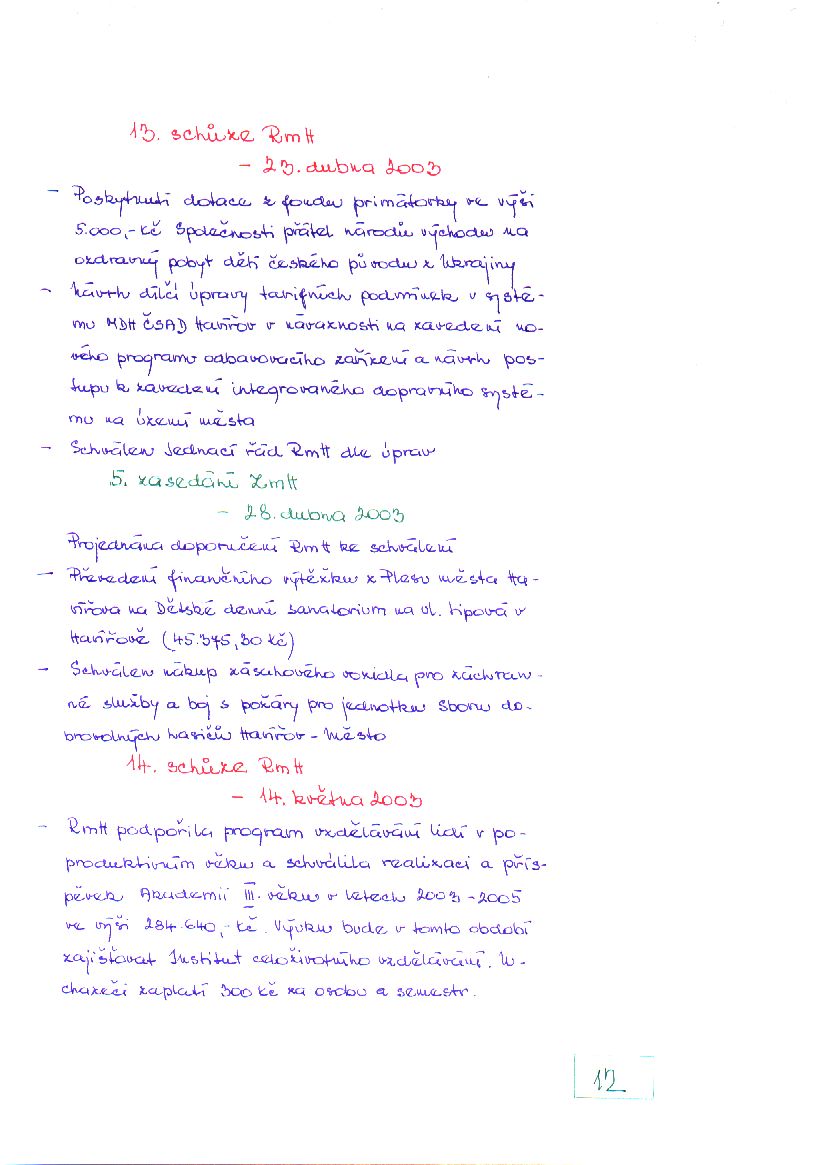 13. schůze RmH
- 23. dubna 2003
- Poskytnutí dotace z fondu primátorky ve výši
5.000,- Kč Společnosti přátel národů východu na
ozdravný pobyt dětí českého původu z Ukrajiny
- Návrh dílčí úpravy tarifních podmínek v systé-
mu MDH ČSAD Havířov v návaznosti na zavedení no-
vého programu odbavovacího zařízení a návrh pos-
tupu k zavedení integrovaného dopravního systé-
mu na území města
- Schválen Jednací řád RmH dle úprav
5. zasedání ZmH
- 28. dubna 2003
Projednána doporučení RmH ke schválení
- Převedení finančního výtěžku z Plesu města Ha-
vířova na Dětské denní sanatorium na ul. Lipová v
Havířově (45.375,30 Kč)
- Schválen nákup zásahového vozidla pro záchran-
né služby a boj s požáry pro jednotku Sboru do-
brovolných hasičů Havířov - Město
14. schůze RmH
- 14. května 2003
- RmH podpořila program vzdělávání lidí v po-
produktivním věku a schválila realizaci a přís-
pěvek Akademii III. věku v letech 2003 - 2005
ve výši 284.640,- Kč. Výuku bude v tomto období
zajišťovat Institut celoživotního vzdělávání. U-
chazeči zaplatí 300 Kč za osobu a semestr.
12